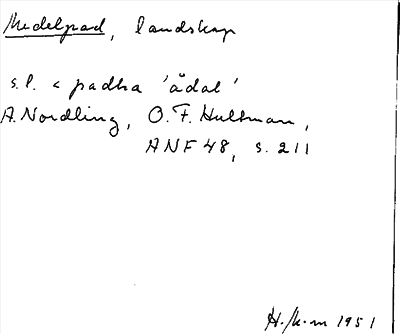 Medelpad, landskap
s.l. < padha 'ådal'
A. Nordling, O. F. Hultman,
ANF 48, s. 211
H. K-m 1951